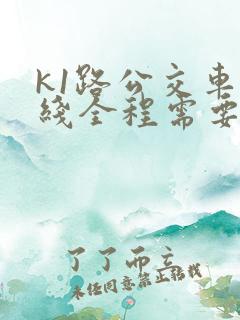 k1路公交车
线全程需要
了了而立
未经同意禁止转载